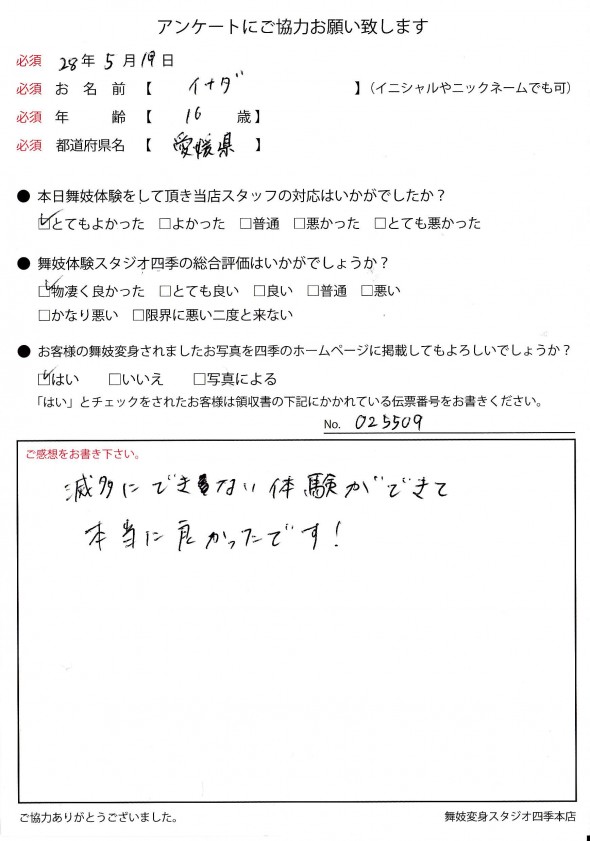 アンケートにご協力お願い致します
必須 28年 5月 19日
必須 お名前 【 イナダ 】（イニシャルやニックネームでも可）
必須 年齢 【 16 歳】
必須 都道府県名 【 愛媛県 】
● 本日舞妓体験をして頂き当店スタッフの対応はいかがでしたか？
☑とてもよかった □よかった □普通 □悪かった □とても悪かった
● 舞妓体験スタジオ四季の総合評価はいかがでしょうか？
☑物凄く良かった □とても良い □良い □普通 □悪い
□かなり悪い □限界に悪い二度と来ない
● お客様の舞妓変身されましたお写真を四季のホームページに掲載してもよろしいでしょうか？
☑はい □いいえ □写真による
「はい」とチェックをされたお客様は領収書の下記にかかれている伝票番号をお書きください。
No. 025509
ご感想をお書き下さい。
滅多にできない体験ができて
本当に良かったです！
ご協力ありがとうございました。
舞妓変身スタジオ四季本店